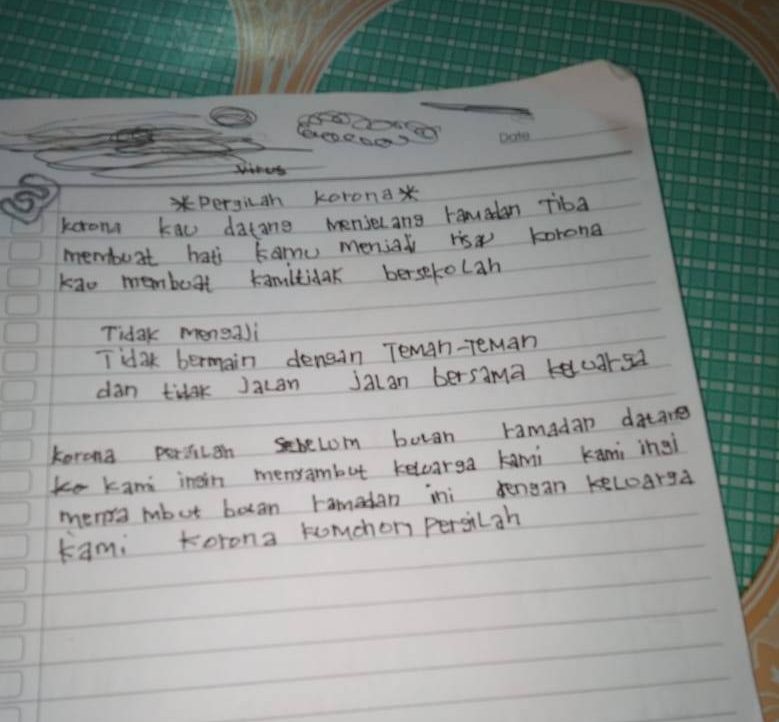 Date
virus
*Pergilah korona*
korona kau datang menjelang ramadan Tiba
membuat hati kamu menjadi risau korona
kau membuat kamitidak bersekolah
Tidak mengaji
Tidak bermain dengan Teman-Teman
dan tidak Jalan jalan bersama keluarga
korona pergilah sebelum bulan ramadan datang
ke kami ingin menyambut keluarga kami kami ingi
menyambut bulan ramadan ini dengan keluarga
kami korona pergilah